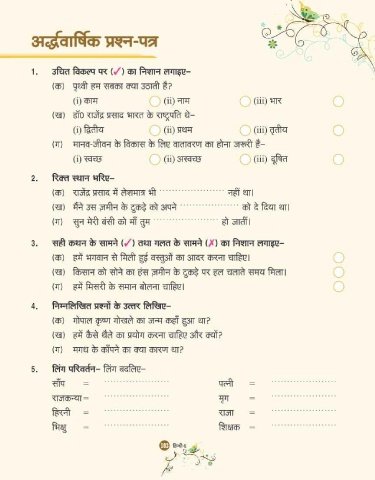 अर्द्धवार्षिक प्रश्न-पत्र
1. उचित विकल्प पर (✓) का निशान लगाइए-
(क) पृथ्वी हम सबका क्या उठाती है?
(i) काम (ii) नाम (iii) भार
(ख) डॉ0 राजेंद्र प्रसाद भारत के राष्ट्रपति थे-
(i) द्वितीय (ii) प्रथम (iii) तृतीय
(ग) मानव-जीवन के विकास के लिए वातावरण का होना जरूरी है-
(i) स्वच्छ (ii) अस्वच्छ (iii) दूषित
2. रिक्त स्थान भरिए-
(क) राजेंद्र प्रसाद में लेशमात्र भी .................... नहीं था।
(ख) मैंने उस ज़मीन के टुकड़े को अपने .................... को दे दिया था।
(ग) सुन मेरी बंसी को माँ तुम .................... हो जातीं।
3. सही कथन के सामने (✓) तथा गलत के सामने (✗) का निशान लगाइए-
(क) हमें भगवान से मिली हुई वस्तुओं का आदर करना चाहिए।
(ख) किसान को सोने का हंस ज़मीन के टुकड़े पर हल चलाते समय मिला।
(ग) हमें मिसरी के समान बोलना चाहिए।
4. निम्नलिखित प्रश्नों के उत्तर लिखिए-
(क) गोपाल कृष्ण गोखले का जन्म कहाँ हुआ था?
(ख) हमें कैसे थैले का प्रयोग करना चाहिए और क्यों?
(ग) मगध के काँपने का क्या कारण था?
5. लिंग परिवर्तन- लिंग बदलिए-
साँप = .................... पत्नी = ....................
राजकन्या= .................... मृग = ....................
हिरनी = .................... राजा = ....................
भिक्षु = .................... शिक्षक = ....................
हिन्दी-5